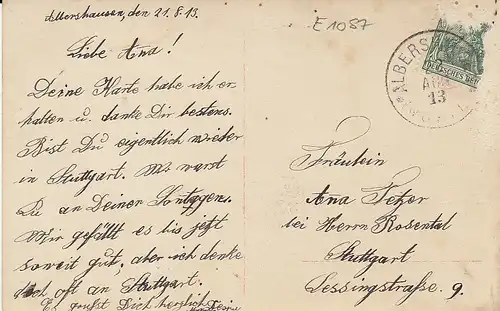 Albershausen, den 21.8.13.
Liebe Ana!
Deine Karte habe ich er
halten u. danke Dir bestens.
Bist Du eigentlich wieder
in Stuttgart. Wo warst
Du an Deiner
Mir gefällt es bis jetzt
soweit gut, aber ich denke
doch oft an Stuttgart.
Es grüßt Dich herzlich
Deine
E 1087
ALBERS
DEUTSCHES REICH
13
Fräulein
Ana Fetzer
bei Herrn Rosental
Stuttgart
Lessingstraße. 9.